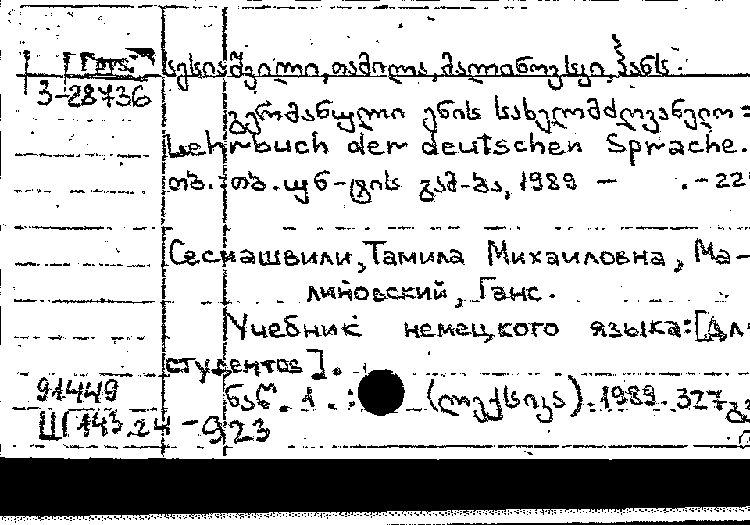 სესიაშვილი, თამილა, მალინოვსკი, ჰანს.
3-28736
გერმანული ენის სახელმძღვანელო =
Lehrbuch der deutschen Sprache.
თბ.: თბ. უნ-ტის გამ-ბა, 1989 — .-22
Сесиашвили, Тамила Михаиловна, Ма-
линовский, Ганс.
Учебник немецкого языка: [Для
студентов].
91449
ნაწ. 1. : (ლექსიკა). 1989. 327გვ
Ш143.24-923